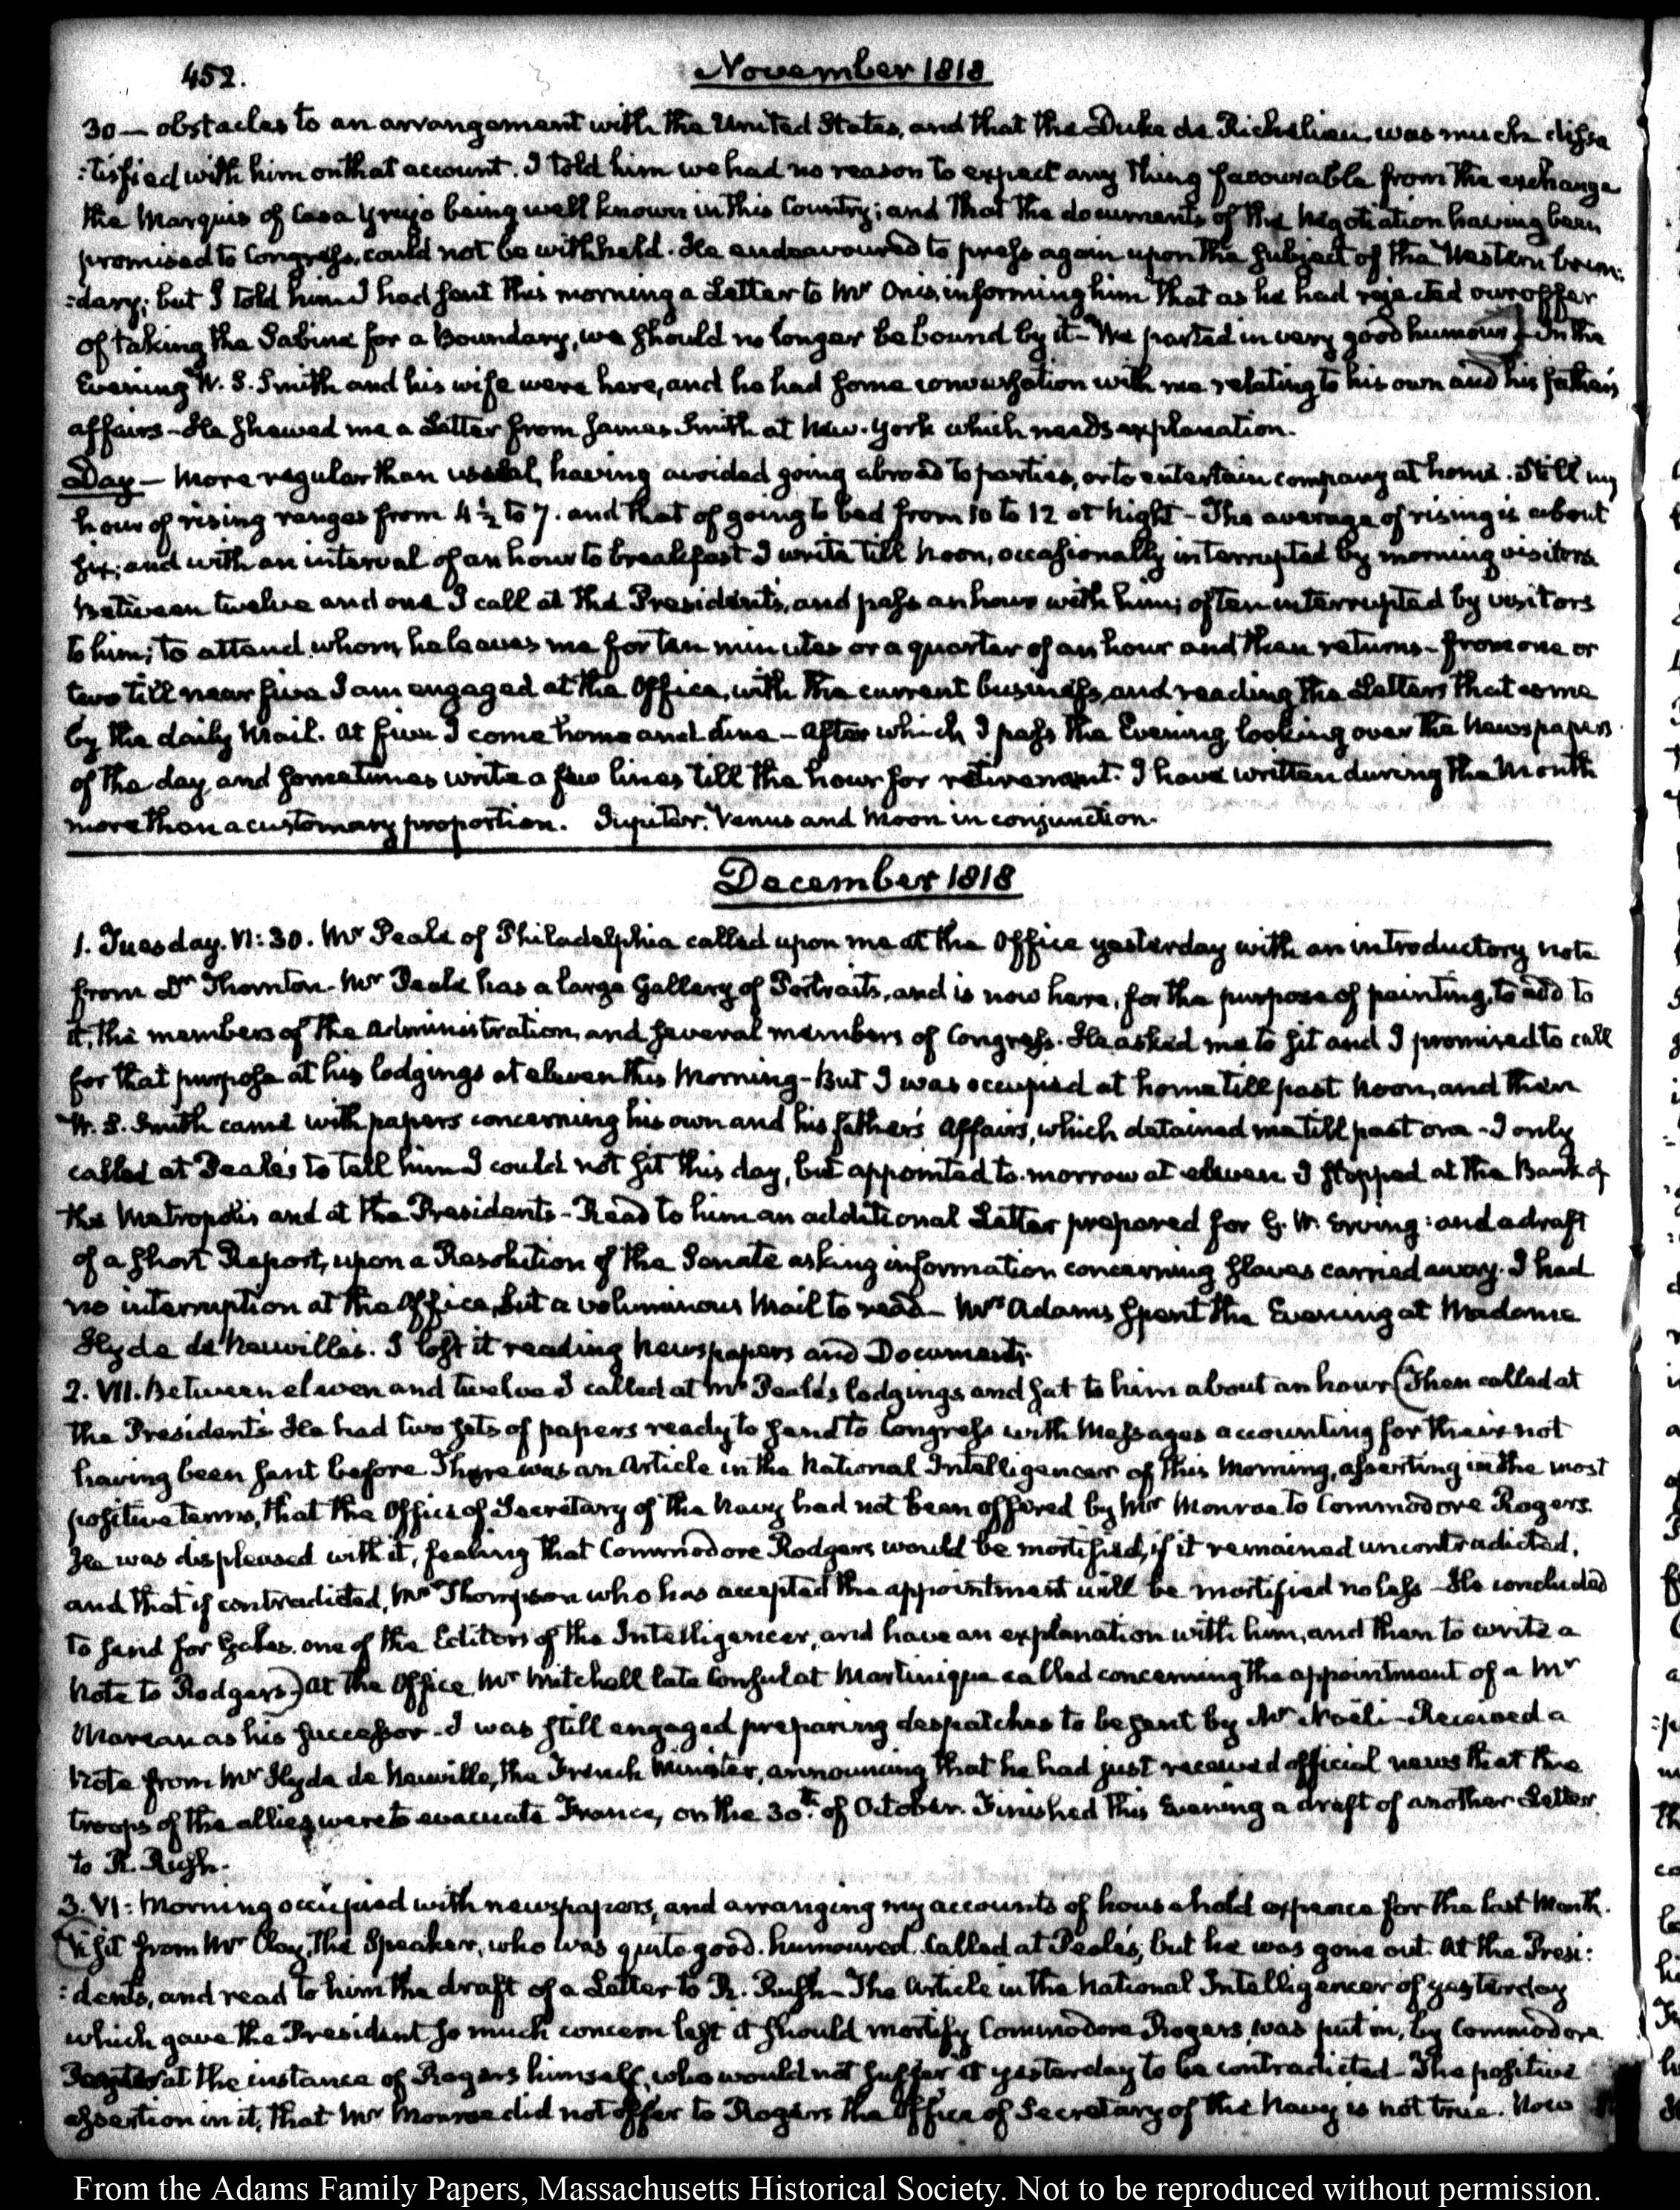 452. November 1818
30 — obstacles to an arrangement with the United States, and that the Duke de Richelieu was much dissa
:tisfied with him on that account. I told him we had no reason to expect any thing favourable from the exchange
the Marquis of Casa Yrujo being well known in this Country; and that the documents of the Negotiation having been
promised to Congress, could not be withheld. He endeavoured to press again upon the subject of the Western boun:
:dary; but I told him I had sent this morning a Letter to Mr Onis, informing him that as he had rejected our offer
of taking the Sabine for a Boundary, we should no longer be bound by it — We parted in very good humour — In the
Evening W. S. Smith and his wife were here, and he had some conversation with me relating to his own and his father's
affairs — He shewed me a Letter from James Smith at New-York which needs explanation.
Day — More regular than usual, having avoided going abroad to parties, or to entertain company at home. Still my
hour of rising ranges from 4½ to 7. and that of going to bed from 10 to 12 at Night — The average of rising is about
six; and with an interval of an hour to breakfast I write till Noon, occasionally interrupted by morning visitors
Between twelve and one I call at the President's, and pass an hour with him; often interrupted by visitors
to him; to attend whom, he leaves me for ten minutes or a quarter of an hour and then returns — from one or
two till near five I am engaged at the Office, with the current business, and reading the Letters that come
by the daily Mail. At five I come home and dine — After which I pass the Evening looking over the Newspapers
of the day, and sometimes write a few lines till the hour for retirement. I have written during the Month
more than a customary proportion. Jupiter. Venus and Moon in conjunction.
December 1818
1. Tuesday. VI: 30. Mr Peale of Philadelphia called upon me at the Office yesterday with an introductory note
from Dr Thornton — Mr Peale has a large Gallery of Portraits, and is now here, for the purpose of painting, to add to
it, the members of the Administration, and several members of Congress. He asked me to sit and I promised to call
for that purpose at his lodgings at eleven this Morning — But I was occupied at home till past Noon, and then
W. S. Smith came with papers concerning his own and his father's Affairs, which detained me till past one — I only
called at Peale's to tell him I could not sit this day, but appointed to-morrow at eleven. I stopped at the Bank of
the Metropolis and at the President's — Read to him an additional Letter prepared for G. W. Erving: and a draft
of a short Report, upon a Resolution of the Senate asking information concerning slaves carried away. I had
no interruption at the Office, but a voluminous Mail to read — Mrs Adams spent the Evening at Madame
Hyde de Neuville's. I lost it reading Newspapers and Documents.
2. VII. Between eleven and twelve I called at Mr Peale's lodgings, and sat to him about an hour (Then called at
the President's. He had two sets of papers ready to send to Congress with Messages accounting for their not
having been sent before. There was an Article in the National Intelligencer of this Morning, asserting in the most
positive terms, that the Office of Secretary of the Navy had not been offered by Mr Monroe to Commodore Rogers.
He was displeased with it, feeling that Commodore Rodgers would be mortified, if it remained uncontradicted,
and that if contradicted, Mr Thompson who has accepted the appointment will be mortified no less — He concluded
to send for Gales, one of the Editors of the Intelligencer, and have an explanation with him, and then to write a
Note to Rodgers.) At the Office, Mr Mitchell late Consul at Martinique called concerning the appointment of a Mr
Marcan as his successor — I was still engaged preparing despatches to be sent by Mr Noeli — Received a
Note from Mr Hyde de Neuville, the French Minister, announcing that he had just received official news that the
troops of the allies were to evacuate France, on the 30th of October. Finished this Evening a draft of another Letter
to R. Rush.
3. VI: Morning occupied with newspapers, and arranging my accounts of household expence for the last Month.
(Visit from Mr Clay, the Speaker, who was quite good-humoured. Called at Peale's, but he was gone out. At the Presi:
:dent's, and read to him the draft of a Letter to R. Rush — The Article in the National Intelligencer of yesterday
which gave the President so much concern lest it should mortify Commodore Rogers, was put in, by Commodore
at the instance of Rogers himself, who would not suffer it yesterday to be contradicted — The positive
assertion in it, that Mr Monroe did not offer to Rogers the Office of Secretary of the Navy is not true. Now
From the Adams Family Papers, Massachusetts Historical Society. Not to be reproduced without permission.